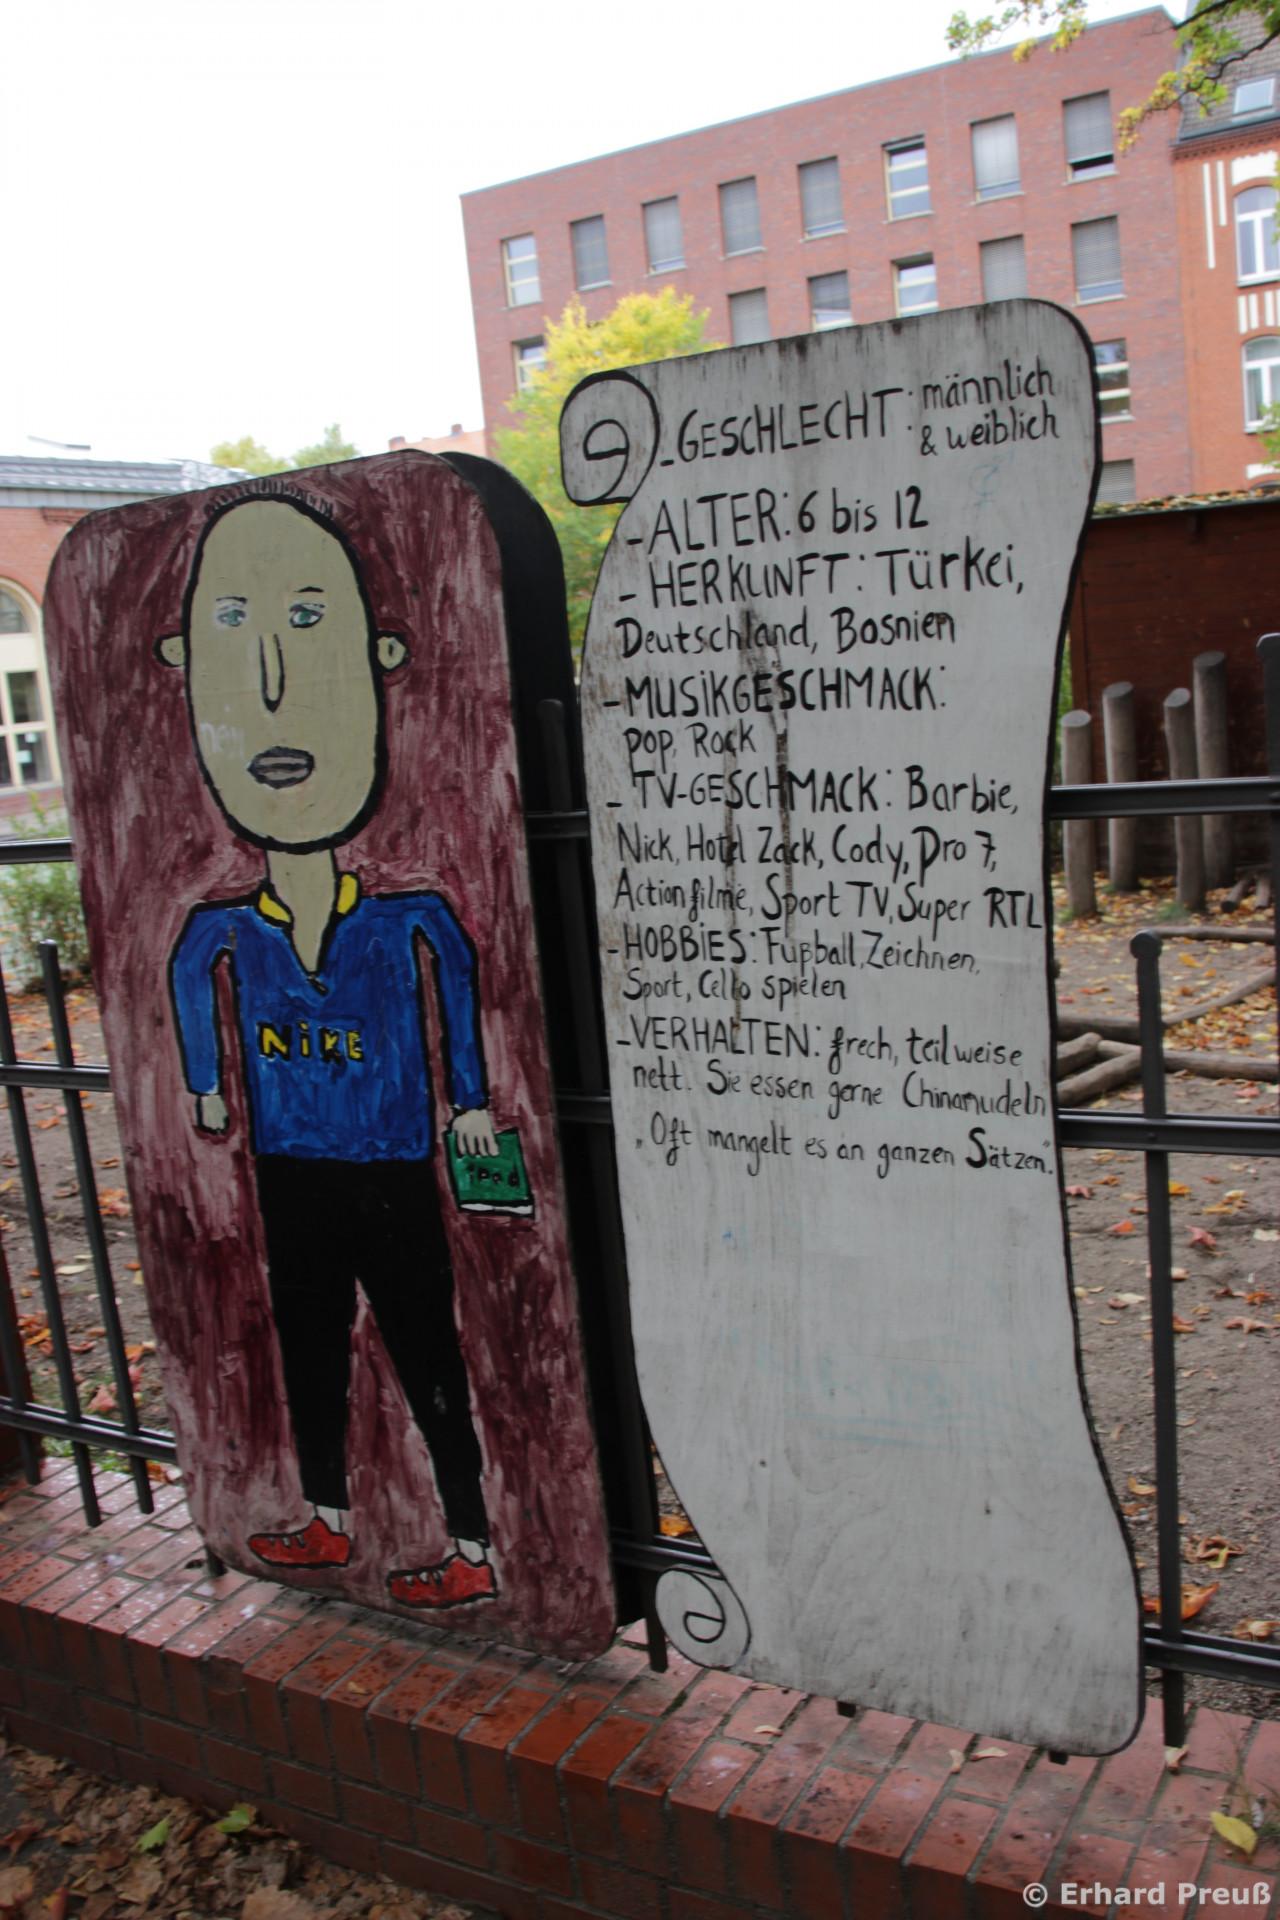 nein
NiKE
ipod
- GESCHLECHT: männlich
& weiblich
- ALTER: 6 bis 12
- HERKUNFT: Türkei,
Deutschland, Bosnien
- MUSiKGESCHMACK:
pop, Rock
- TV-GESCHMACK: Barbie,
Nick, Hotel Zack, Cody, Pro 7,
Actionfilme, Sport TV, Super RTL
- HOBBiES: Fußball, Zeichnen,
Sport, Cello spielen
- VERHALTEN: frech, teilweise
nett. Sie essen gerne Chinanudeln
„Oft mangelt es an ganzen Sätzen."
© Erhard Preuß